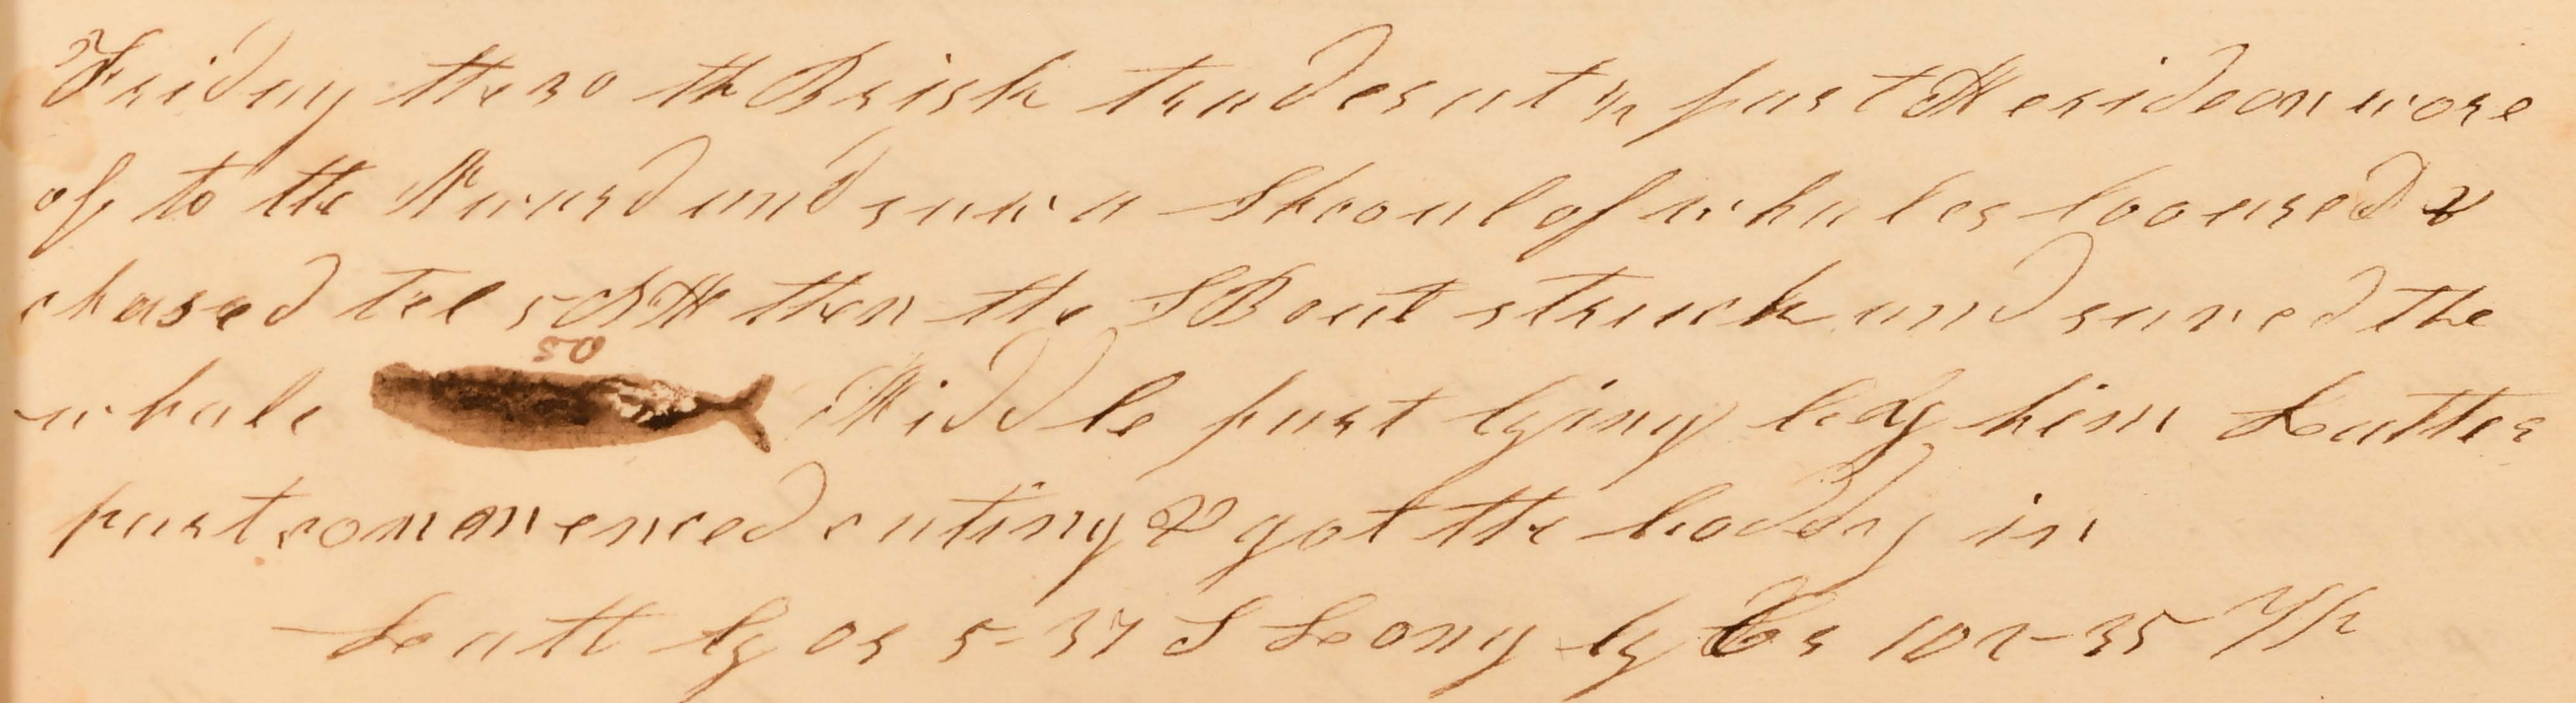 Friday the 30 th Brisk trades at ½ past Meridean wore
of to the Nward and saw a Shooul of whales looured &
chased tel 5 PM then the S Boat struck and saved the
whale Middle part lying bdy him Latter
part commenced cuting & got the boddy in
Latt by Os 5-37 S Long by Cr 102-35 W